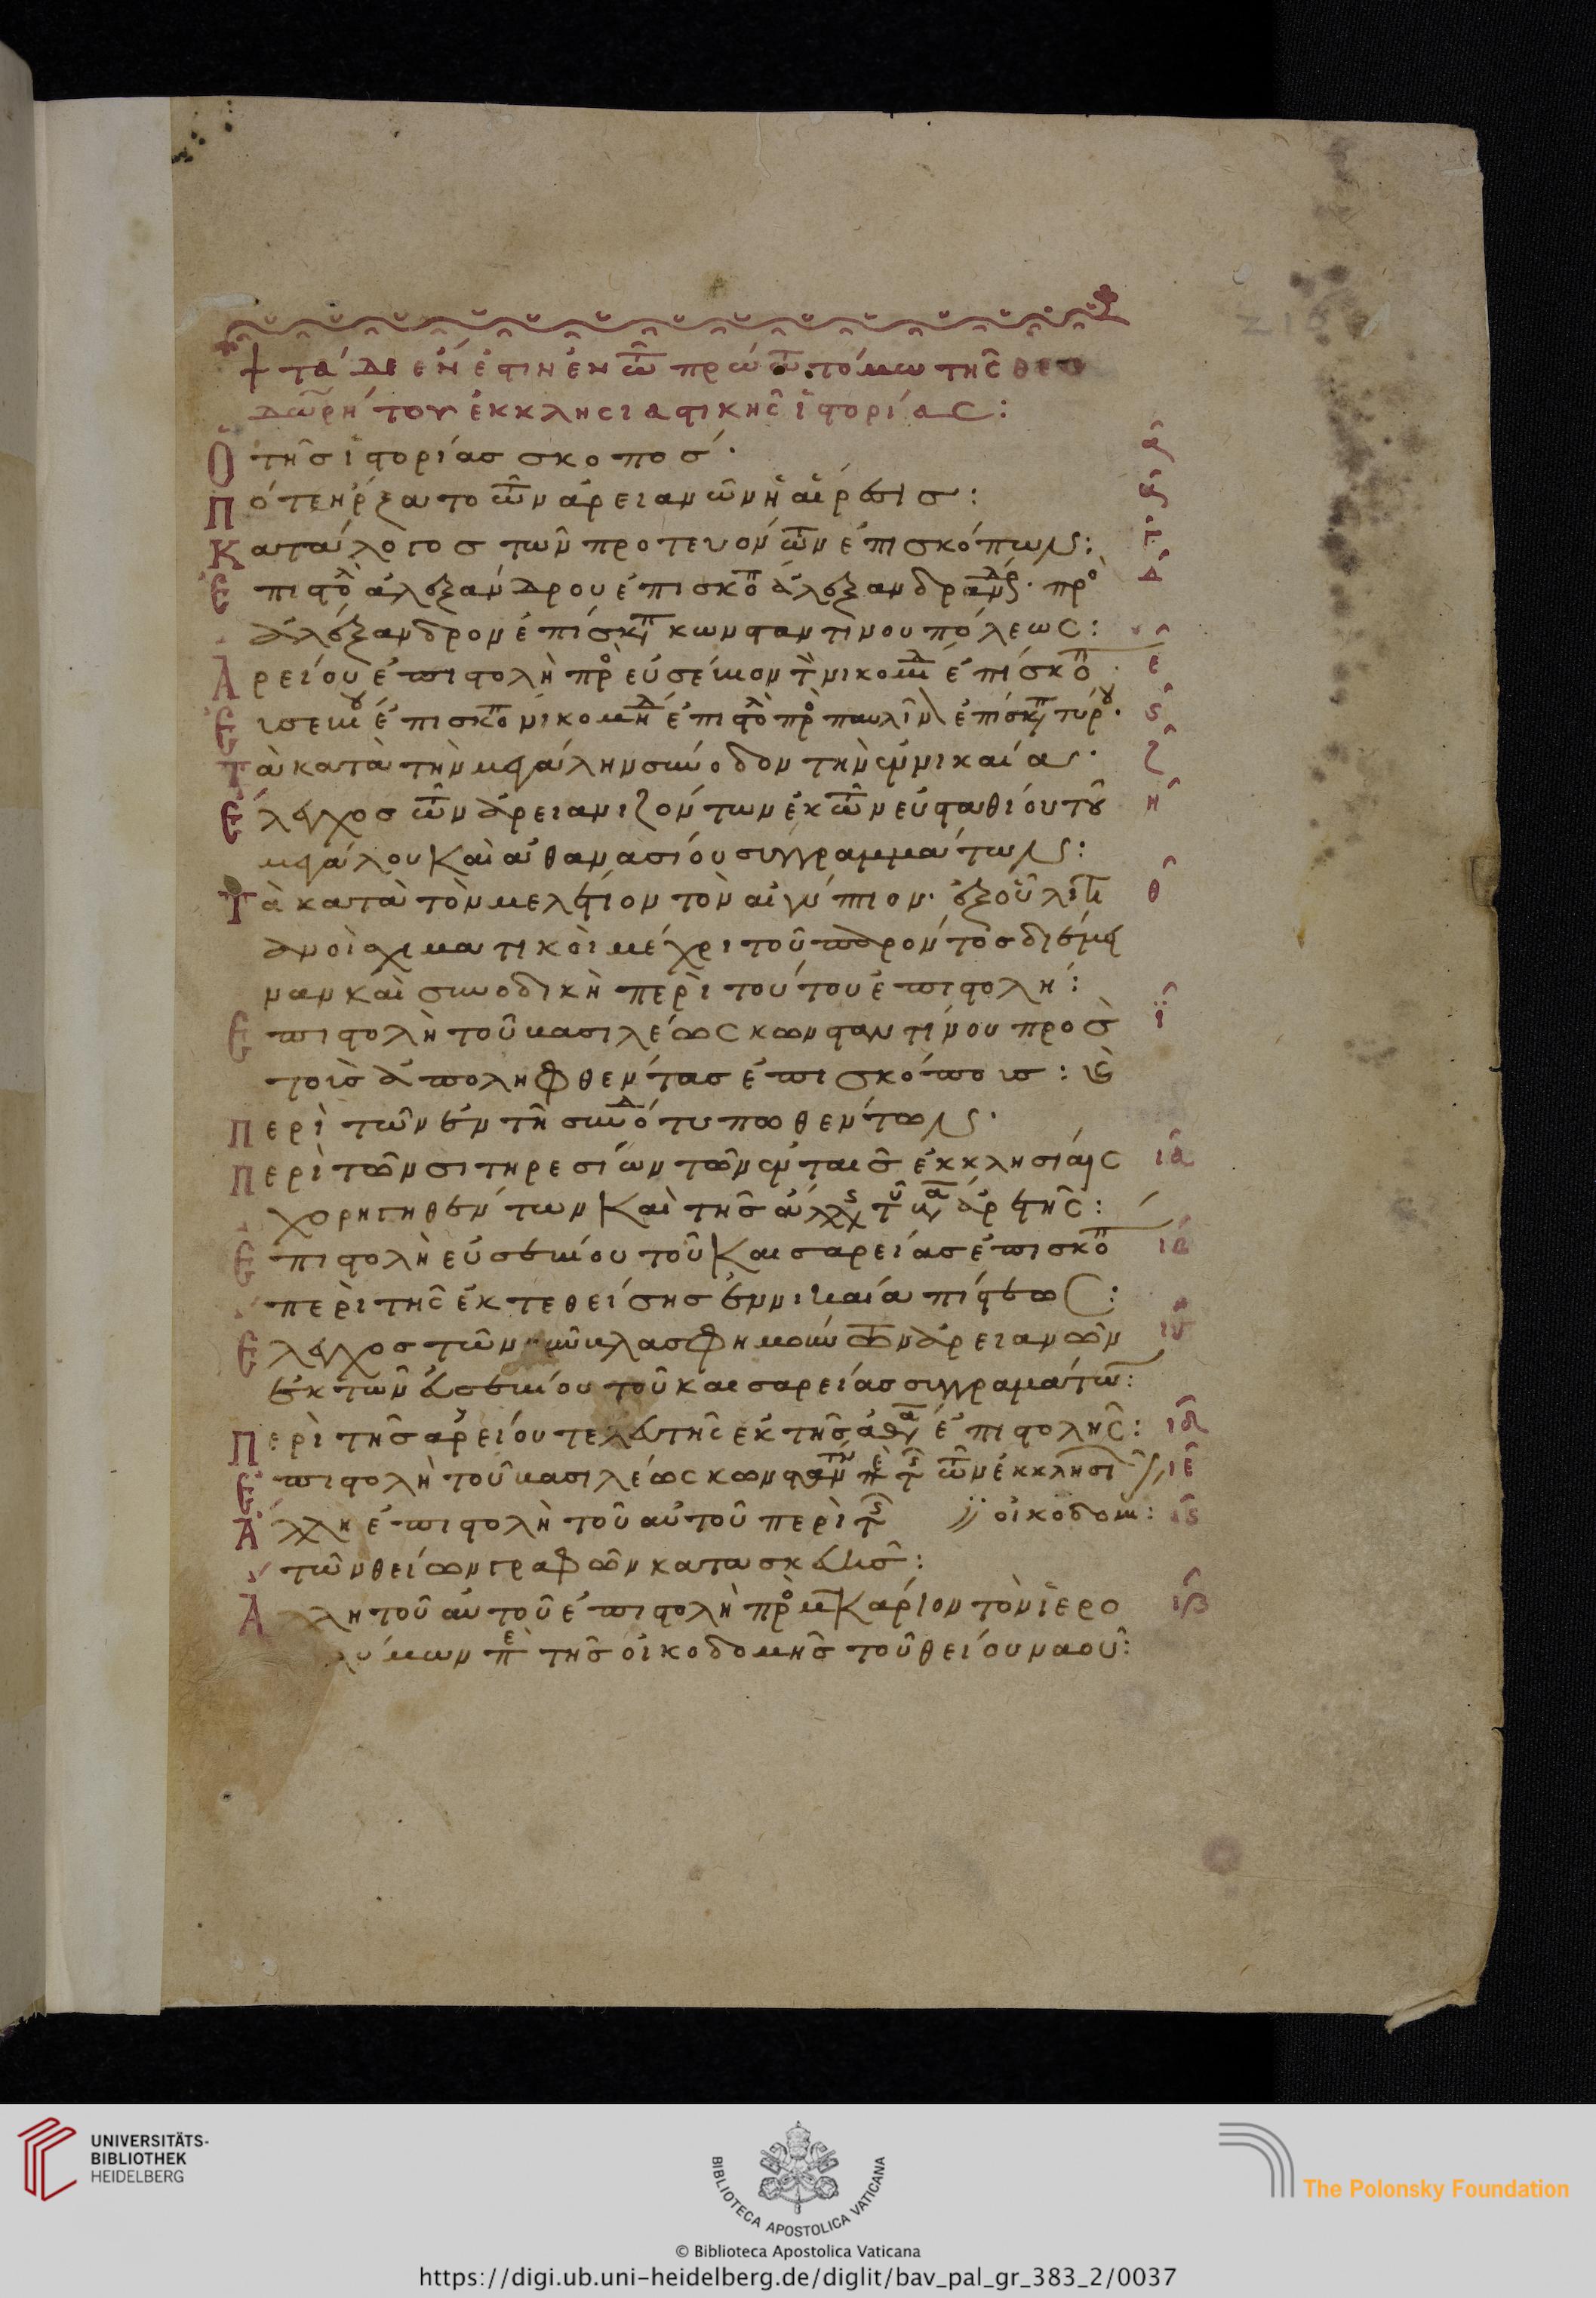 + τάδε ἔνεστιν ἐν τῶ πρώτω τόμω τῆς θεο
δωρήτου ἐκκλησιαστικῆς ἱστορίας:
Ὁ τῆς ἱστορίας σκοπός· α
Πότε ἤρξατο τῶν ἀρειανῶν ἡ αἵρεσις: β
Κατάλογος τῶν πρωτευόντων ἐπισκόπων: γ
Ἐπιστολ ἀλεξάνδρου ἐπισκοπ ἀλεξανδρ πρὸ δ
ἀλέξανδρον ἐπίσκοπ κωνσταντίνου πόλεως:
Ἀρείου ἐπιστολὴ πρὸ εὐσέβιον τὸν νικομ ἐπίσκοπ ε
Εὐσεβίου ἐπισκόπ νικομηδ ἐπιστολ πρὸ παυλῖν ἐπίσκοπ τύρου· ς
Τὰ κατὰ τὴν μεγάλην σύνοδον τὴν ἐν νικαία· ζ
Ἔλεγχος τῶν ἀρειανιζόντων ἐκ τῶν εὐσταθίου τοῦ η
μεγάλου καὶ ἀθανασίου συγγραμμάτων:
Τὰ κατὰ τὸν μελέτιον τὸν αἰγύπτιον· ἐξ οὗ θ
οἱ σχισματικοὶ μέχρι τοῦ παρόντος διέμει
ναν καὶ συνοδικὴ περὶ τούτου ἐπιστολή:
Ἐπιστολὴ τοῦ βασιλέως κωνσταντίνου πρὸς ϊ
τοὺς ἀποληφθέντας ἐπισκόπους:
Περὶ τῶν ἐν τῆ συνόδ τυπωθέντων·
Περὶ τῶν σιτηρεσίων τῶν ἐν ταῖς ἐκκλησίαις ια
χορηγηθέντων καὶ τῆς ἄλλης τοῦ ἀρετῆς:
Ἐπιστολὴ εὐσεβίου τοῦ καισαρείας ἐπισκόπ ιβ
περὶ τῆς ἐκτεθείσης ἐν νικαία πίστεως:
Ἔλεγχος τῶν νῦν βλασφημούντων ἀρειανῶν ιγ
ἐκ τῶν εὐσεβίου τοῦ καισαρείας συγγραμάτων:
Περὶ τῆς ἀρείου τελευτῆς ἐκ τῆς ἀθα ἐπιστολῆς: ιδ
Ἐπιστολὴ τοῦ βασιλέως κωνσταντίν περὶ τῆς τῶν ἐκκλησι ιε
Ἄλλη ἐπιστολὴ τοῦ αὐτοῦ περὶ τῆς // οἰκοδομ: ις
τῶν θείων γραφῶν κατασκευῆς:
Ἄλλη τοῦ αὐτοῦ ἐπιστολὴ πρὸ μακάριον τὸν ἱερο ιζ
λύμων περὶ τῆς οἰκοδομῆς τοῦ θείου ναοῦ:
UNIVERSITÄTS-
BIBLIOTHEK
HEIDELBERG
BIBLIOTECA APOSTOLICA VATICANA
© Biblioteca Apostolica Vaticana
The Polonsky Foundation
https://digi.ub.uni-heidelberg.de/diglit/bav_pal_gr_383_2/0037